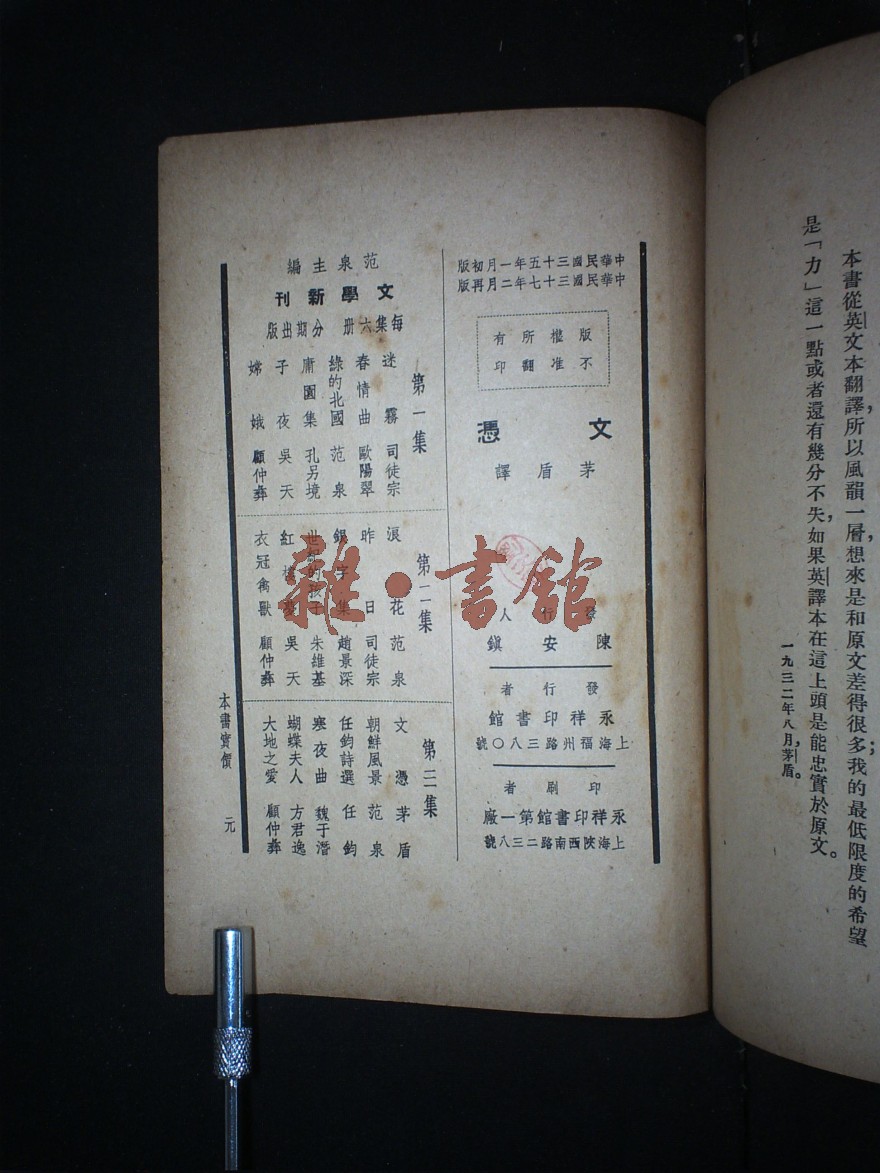 本書從英文本翻譯，所以風韻一層，想來是和原文差得很多；我的最低限度的希望
是「力」這一點或者還有幾分不失，如果英譯本在這上頭是能忠實於原文。
一九三二年八月，茅盾。
中華民國三十五年一月初版
中華民國三十七年二月再版
版權所有
不准翻印
文憑
茅盾譯
發行人
陳安鎮
發行者
永祥印書館
上海福州路三八〇號
印刷者
永祥印書館第一廠
上海陝西南路二三八號
范泉主編
文學新刊
每集六册 分期出版
第一集
迷霧 司徒宗
春情曲 歐陽翠
綠的北國 范泉
庸園集 孔另境
子夜 吳天
嫦娥 顧仲彝
第二集
浪花 范泉
昨日 司徒宗
銀字集 趙景深
世紀的孩子 朱維基
紅樓夢 吳天
衣冠禽獸 顧仲彝
第三集
文憑 茅盾
朝鮮風景 范泉
任鈞詩選 任鈞
寒夜曲 魏于潛
蝴蝶夫人 方君逸
大地之愛 顧仲彝
本書實價 元
雜·書館